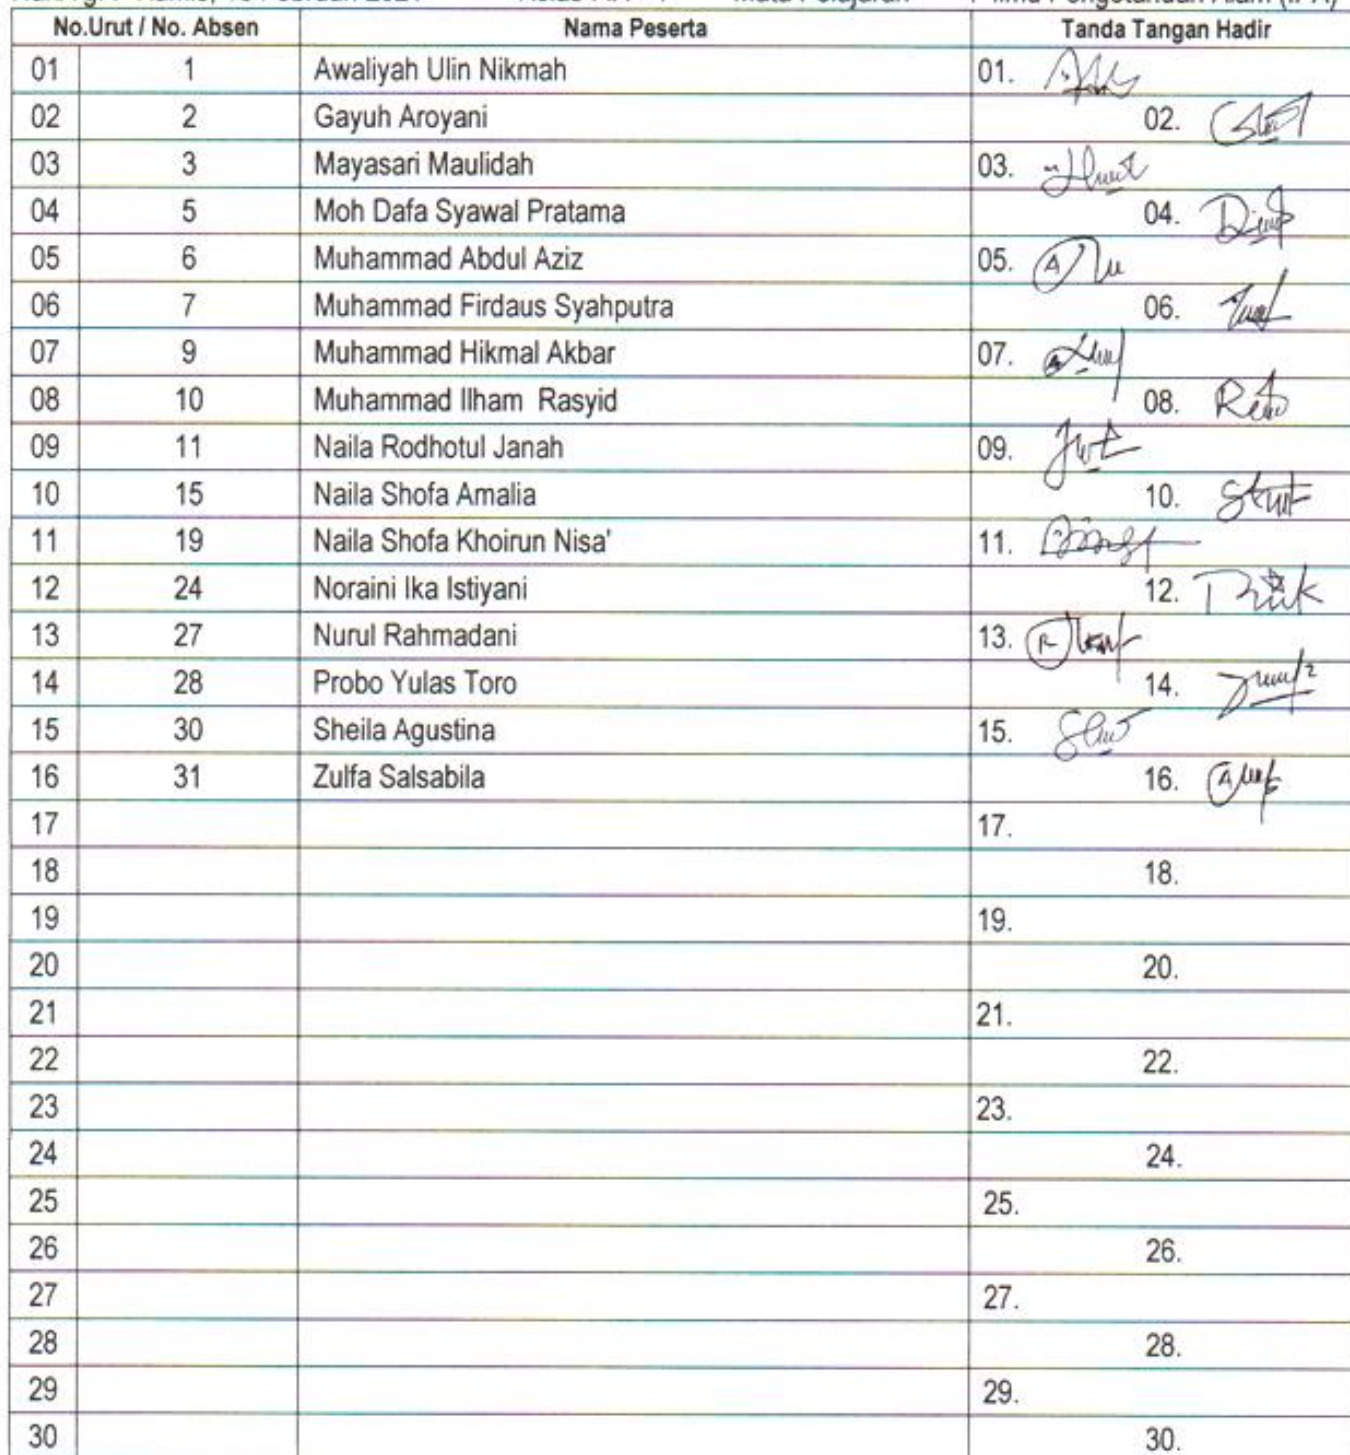 No.Urut / No. Absen Nama Peserta Tanda Tangan Hadir
01 1 Awaliyah Ulin Nikmah 01.
02 2 Gayuh Aroyani 02.
03 3 Mayasari Maulidah 03.
04 5 Moh Dafa Syawal Pratama 04.
05 6 Muhammad Abdul Aziz 05.
06 7 Muhammad Firdaus Syahputra 06.
07 9 Muhammad Hikmal Akbar 07.
08 10 Muhammad Ilham Rasyid 08.
09 11 Naila Rodhotul Janah 09.
10 15 Naila Shofa Amalia 10.
11 19 Naila Shofa Khoirun Nisa' 11.
12 24 Noraini Ika Istiyani 12.
13 27 Nurul Rahmadani 13.
14 28 Probo Yulas Toro 14.
15 30 Sheila Agustina 15.
16 31 Zulfa Salsabila 16.
17 17.
18 18.
19 19.
20 20.
21 21.
22 22.
23 23.
24 24.
25 25.
26 26.
27 27.
28 28.
29 29.
30 30.